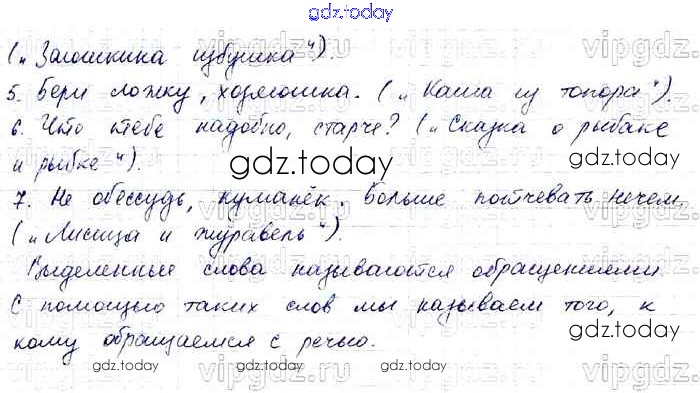 gdz.today
(„Заюшкина избушка“).
5. Бери ложку, хозяюшка. („Каша из топора“).
6. Что тебе надобно, старче? („Сказка о рыбаке
и рыбке“).
gdz.today
7. Не обессудь, куманёк. Больше потчевать нечем.
(„Лисица и журавль“).
Выделенные слова называются обращениями.
С помощью таких слов мы называем того, к
gdz.today
кому обращаемся с речью.
gdz.today gdz.today gdz.today